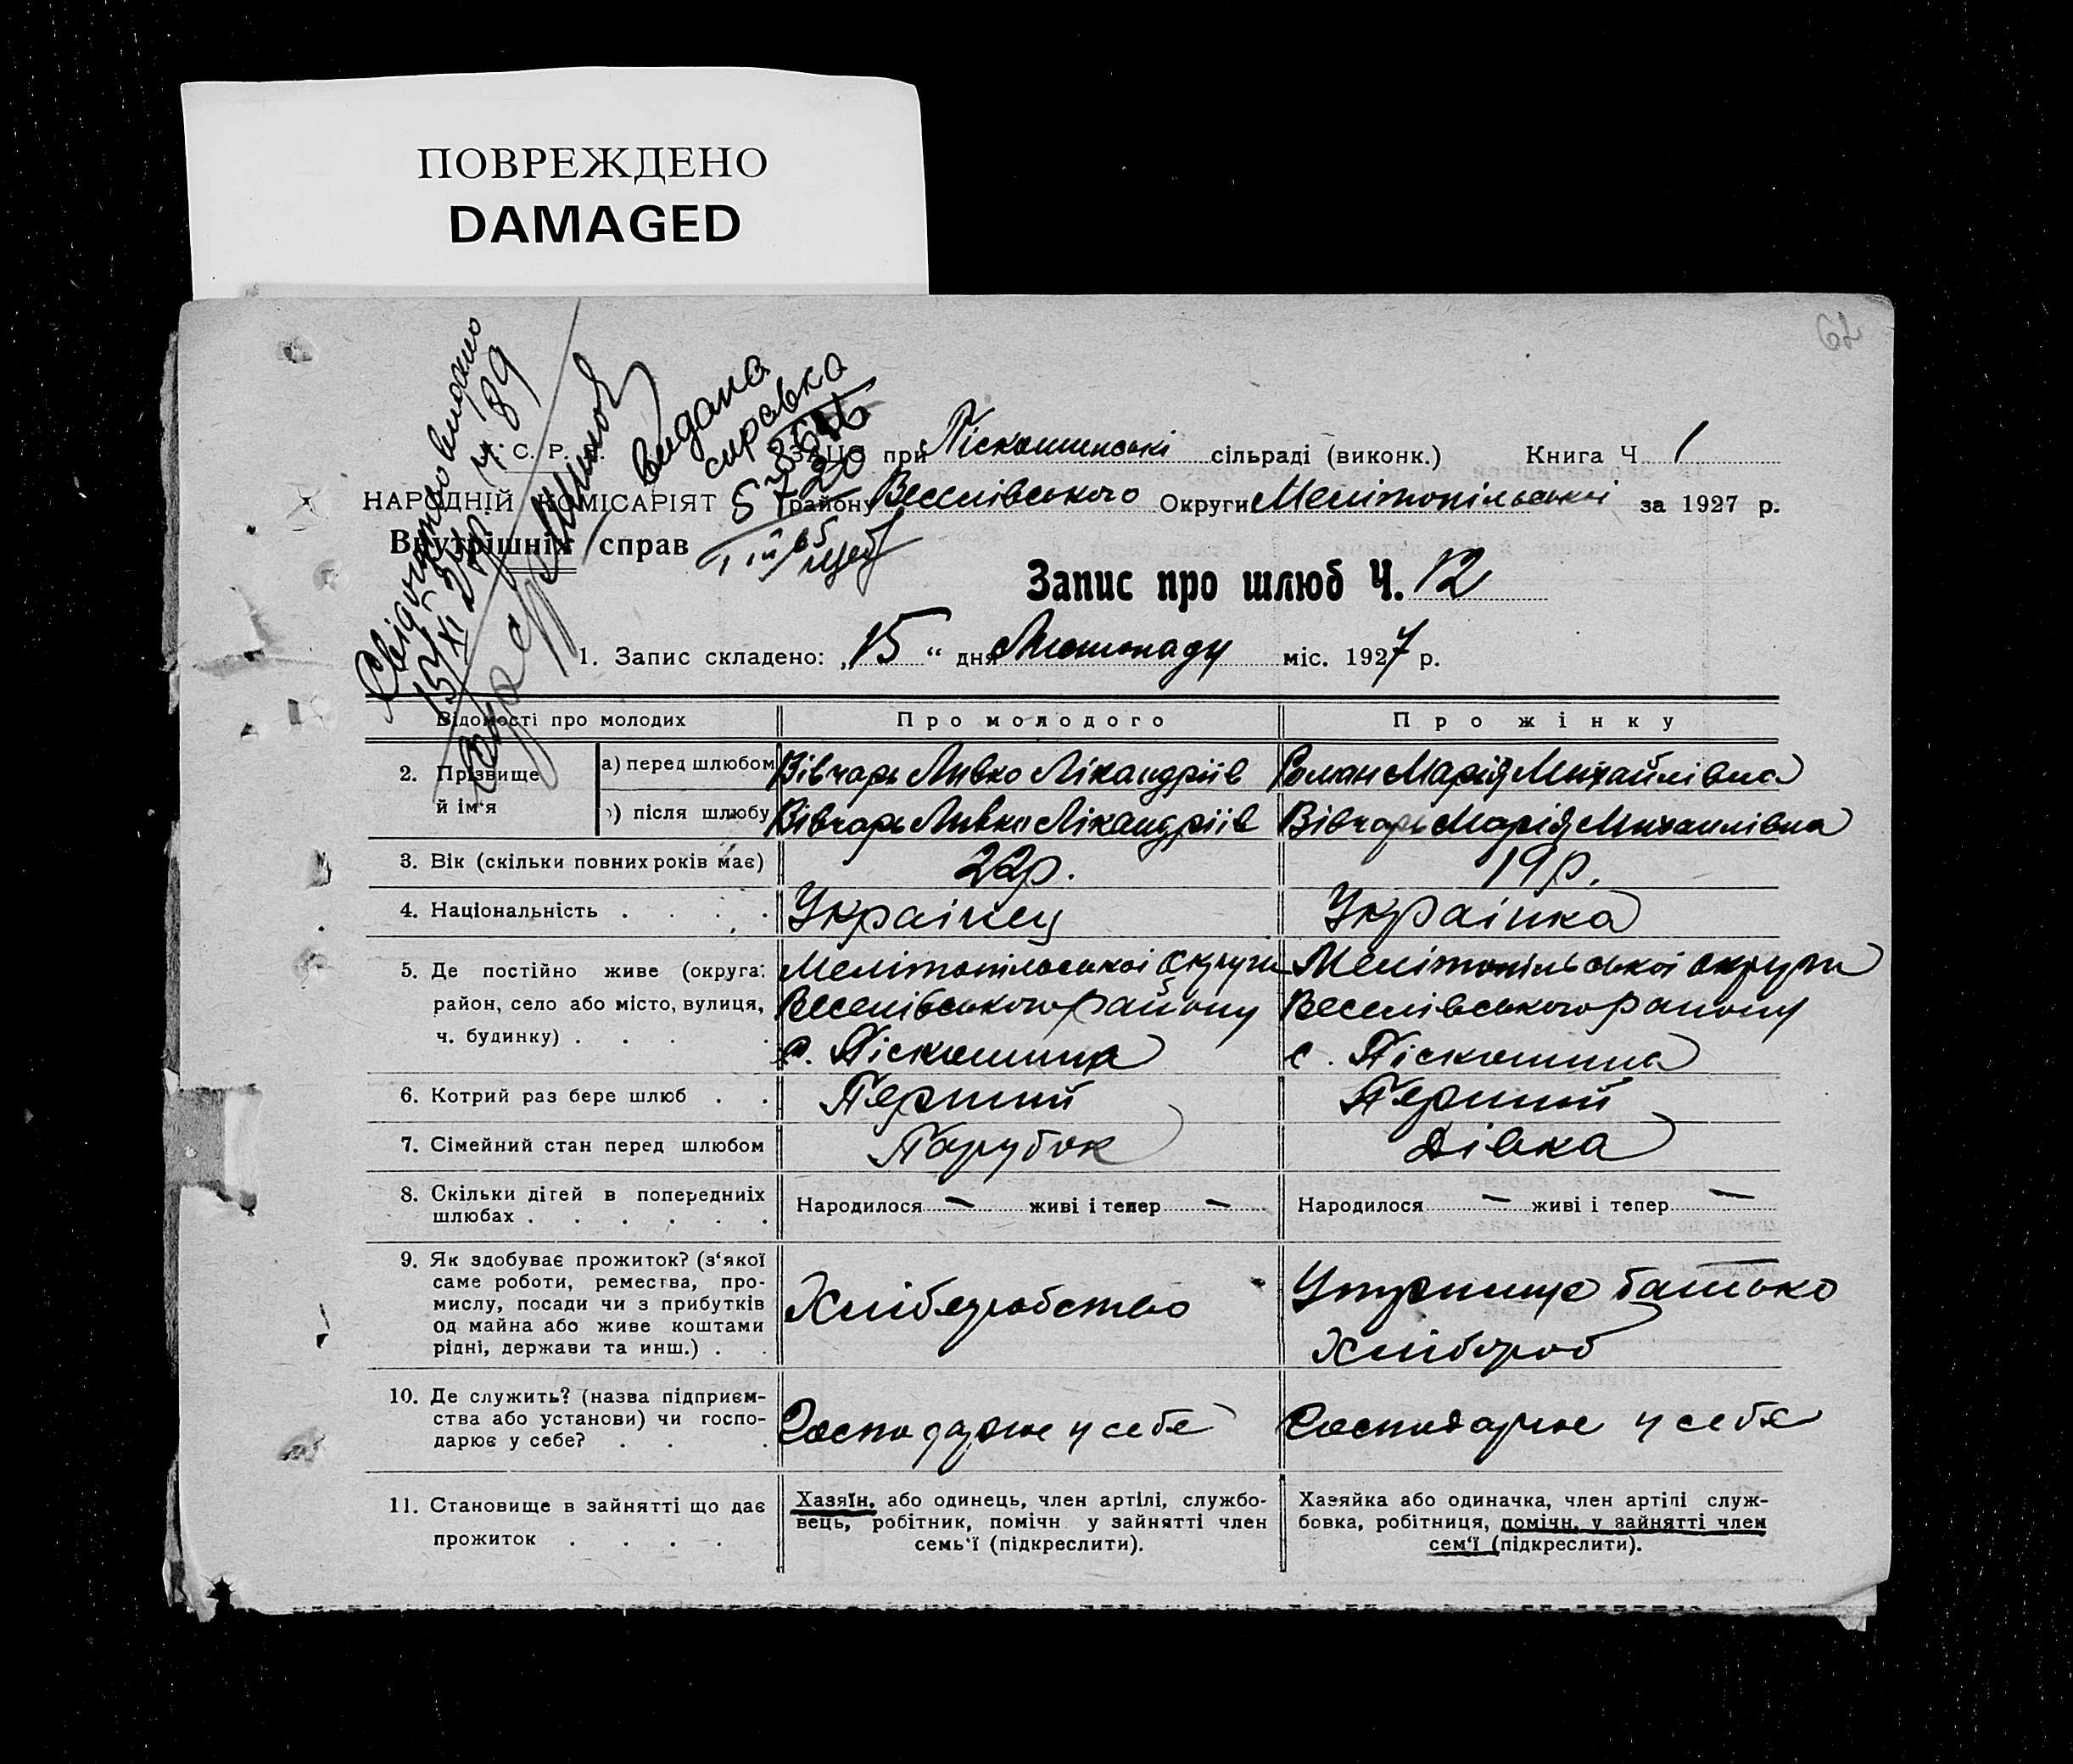 ПОВРЕЖДЕНО
DAMAGED
62
Свідоцтво видано
15/XI 27 р. Ч. 89
Видана
справка
С. Р. ЗАЦС при Піскошинські сільраді (виконк.) Книга Ч 1
НАРОДНІЙ КОМІСАРІЯТ району Веселівського Округи Мелітопільської за 1927 р.
Внутрішніх справ
Запис про шлюб Ч. 12
1. Запис складено: „15“ дня Листопаду міс. 1927 р.
Відомості про молодих Про молодого Про жінку
2. Прізвище й ім‘я а) перед шлюбом Вівчарь Ливко Лікандріів Роман Марія Михайлівна
) після шлюбу Вівчарь Ливко Лікандріів Вівчарь Марія Михаилівна
3. Вік (скільки повних років має) 22р. 19р.
4. Національність . . . . Украінец Украінка
5. Де постійно живе (округа: Мелітопільськоі округи Мелітопільськоі округи
район, село або місто, вулиця, Веселівського району Веселівського раиону
ч. будинку) . . . . с. Піскошина с. Піскошина
6. Котрий раз бере шлюб . . Перший Перший
7. Сімейний стан перед шлюбом Парубок Дівка
8. Скільки дітей в попередниіх Народилося — живі і тепер — Народилося — живі і тепер —
шлюбах . . . . . .
9. Як здобуває прожиток? (з‘якої
саме роботи, ремества, про-
мислу, посади чи з прибутків
од майна або живе коштами
рідні, держави та инш.) . .
Хліборобство
Утримище батько
Хлібороб
10. Де служить? (назва підприєм-
ства або установи) чи госпо-
дарює у себе? . . .
Господарює у себе
Господарює у себе
11. Становище в зайнятті що дає
прожиток . . . .
Хазяїн, або одинець, член артілі, службо-
вець, робітник, помічн у зайнятті член
семь‘ї (підкреслити).
Хазяйка або одиначка, член артілі служ-
бовка, робітниця, помічн. у зайнятті член
сем‘ї (підкреслити).